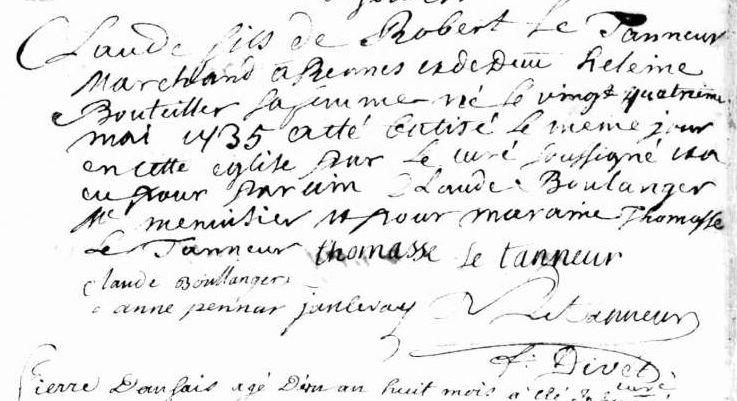 Claude fils de Robert Le Tanneur
Marchand a Rennes et de Dem.lle heleine
Bouteiller sa femme né le vingt quatrieme
mai 1735 et été batisé le meme jour
en cette eglise par le curé soussigné et a
eu pour parain Claude Boulanger
Me menuisier et pour maraine Thomasse
Le Tanneur thomasse le tanneur
Claude Boullanger
anne pennar Letanneur
f: Divet curé
Pierre Dansais agé d'un an huit mois a été